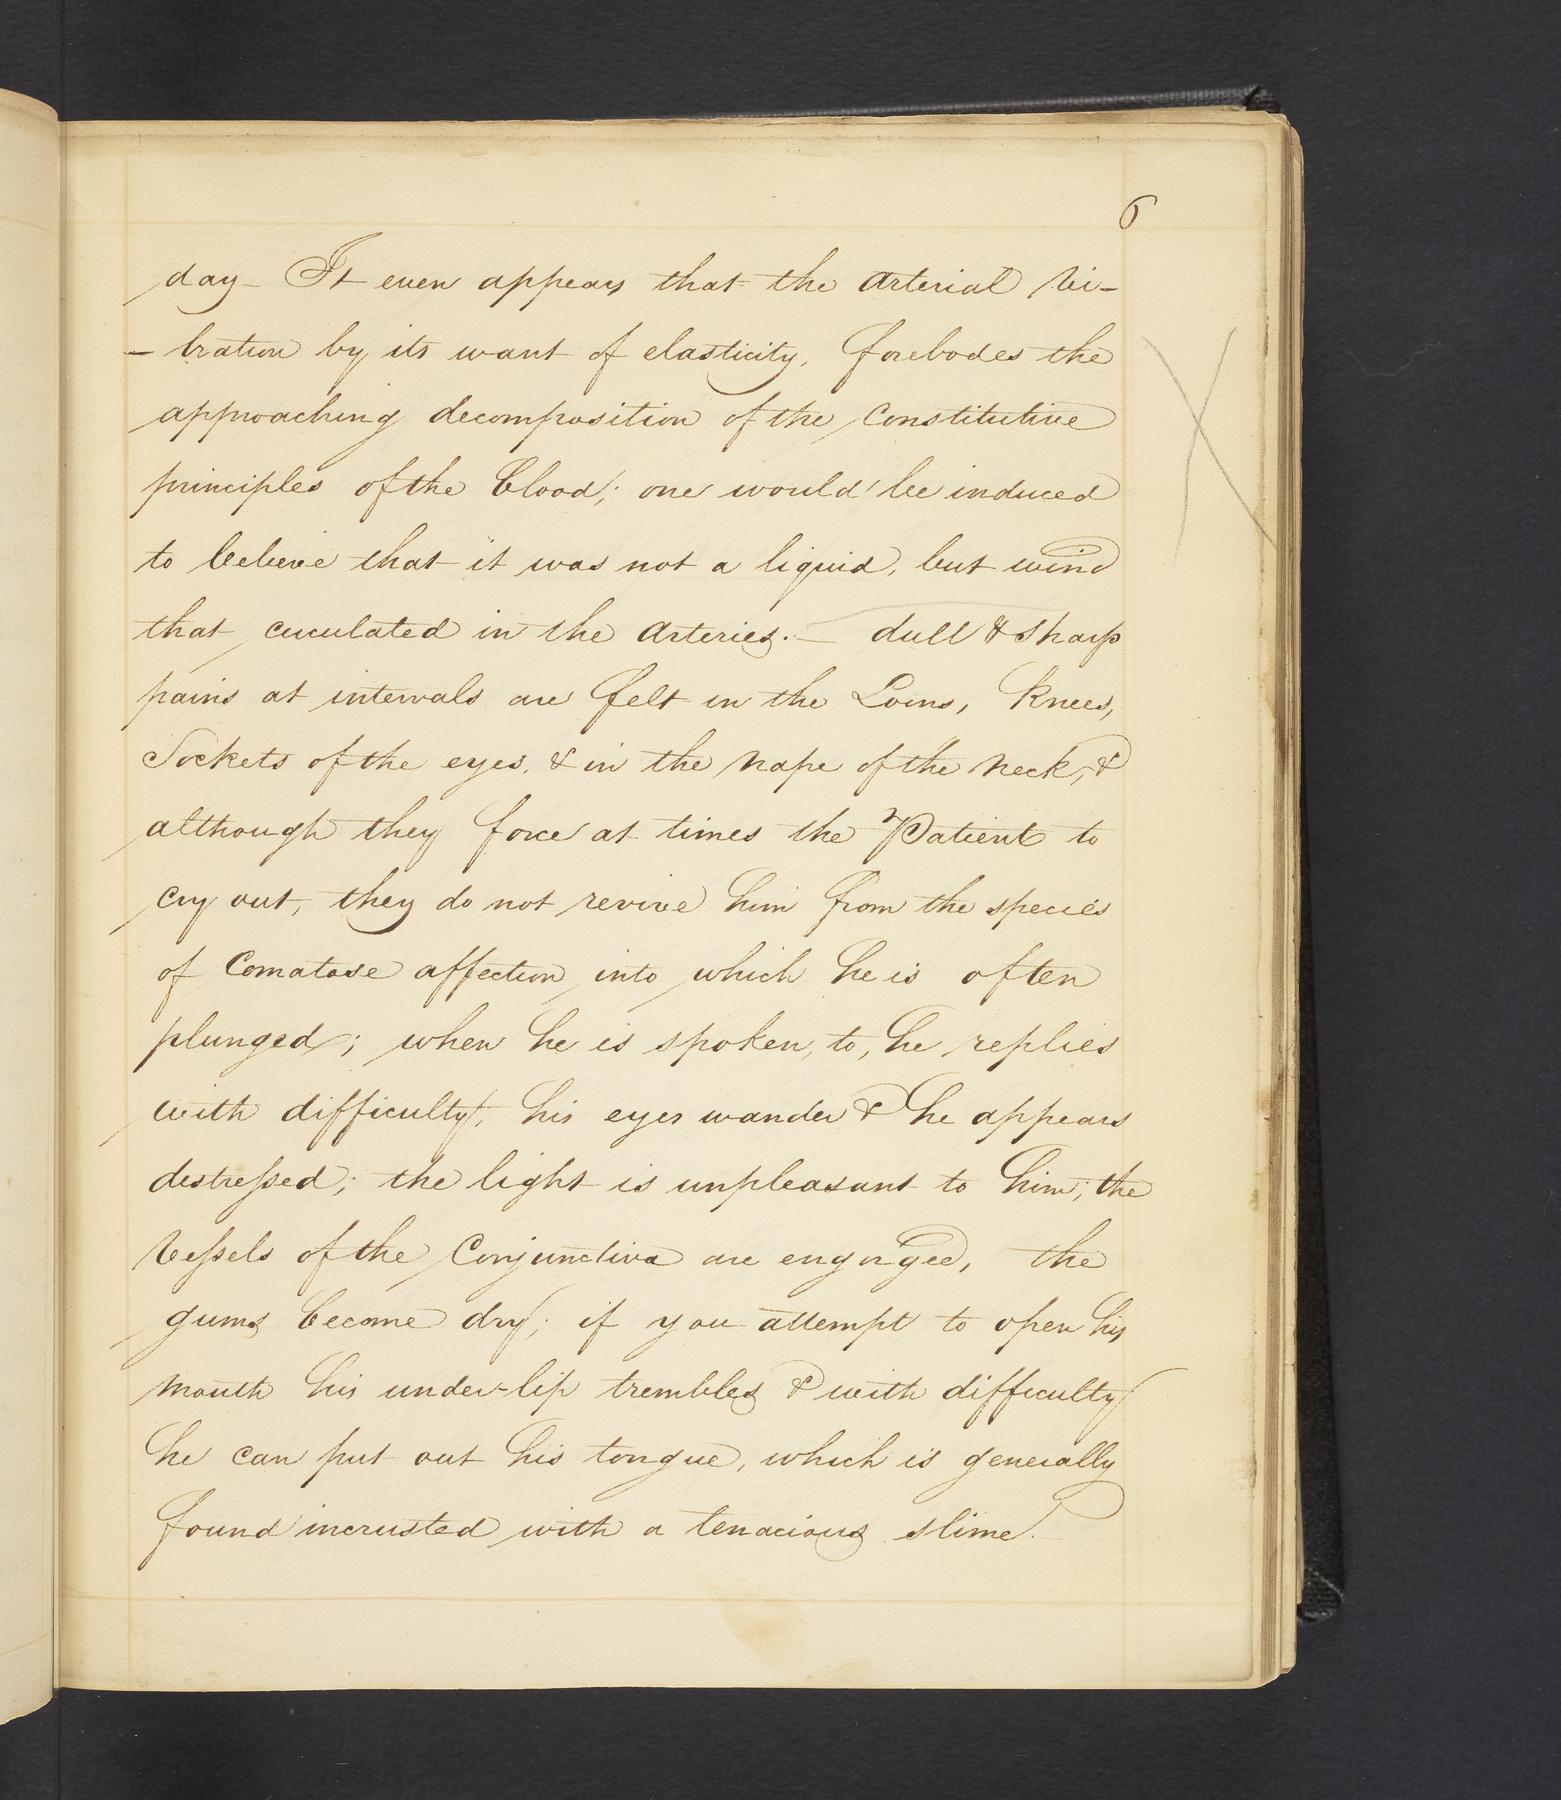 6
day- It even appears that the arterial vi-
- bration by its want of elasticity, forebodes the
approaching decomposition of the Constitutive
principles of the blood; one would be induced
to believe that it was not a liquid, but wind
that circulated in the arteries. — dull & sharp
pains at intervals are felt in the Loins, Knees,
Sockets of the eyes, & in the nape of the neck, &
although they force at times the Patient to
cry out, they do not revive him from the species
of Comatose affection into which he is often
plunged; when he is spoken, to, he replies
with difficulty, his eyes wander & he appears
distreſsed; the light is unpleasant to him; the
Veſsels of the Conjunctiva are engorged, the
gums become dry; if you attempt to open his
mouth his under-lip trembles & with difficulty
he can put out his tongue, which is generally
found incrusted with a tenacious slime. —